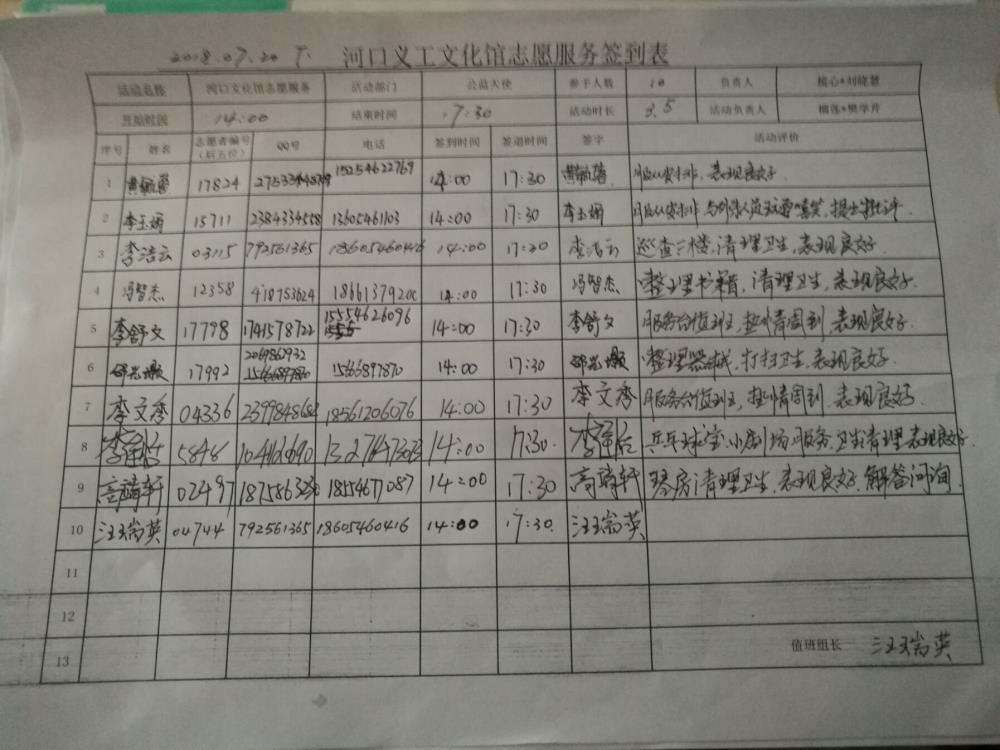 2018.07.20 下 河口义工文化馆志愿服务签到表
活动名称 河口文化馆志愿服务 活动部门 公益天使 参于人数 10 负责人 核心*刘晓慧
开始时间 14:00 结束时间 17:30 活动时长 3.5 活动负责人 榴莲*樊学芹
序号 姓名 志愿者编号(后五位) QQ号 电话 签到时间 签退时间 签字 活动评价
1 17824 15254622769 14:00 17:30 服从安排,表现良好
2 李玉娟 15711 2384334558 13605461103 14:00 17:30 李玉娟 服从安排
3 李浩云 03115 792561365 18605460416 14:00 17:20 李浩云 巡查二楼,清理卫生,表现良好.
4 冯智杰 12358 418753624 14:00 17:30 冯智杰 整理书籍,清理卫生,表现良好.
5 李舒文 17798 1741578722 15554626096 14:00 17:30 李舒文 服务台值班,热情周到 表现良好.
6 17992 2069860932 15666897870 14:00 17:30 整理器械,打扫卫生,表现良好.
7 李文秀 04336 18561206076 14:00 17:30 李文秀 服务台值班,热情周到.表现良好.
8 5848 14:00 17:30. 乒乓球室,小剧场服务.卫生清理.表现良好.
9 高靖轩 02497 14:00 17:30 高靖轩 琴房清理卫生,表现良好.解答问询
10 汪瑞英 04744 792561365 18605460416 14:00 17:30. 汪瑞英
11
12
13 值班组长 汪瑞英